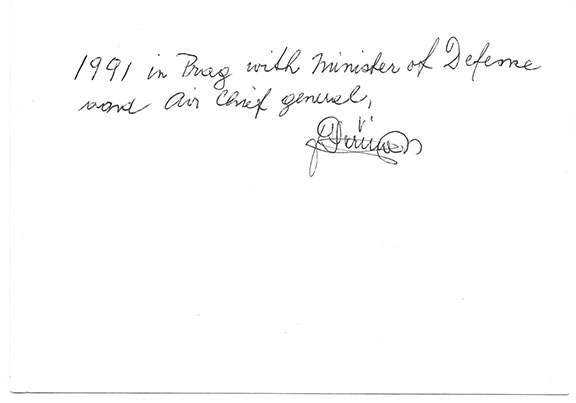 1991 in Prag with Minister of Defense
and Air Chief general,